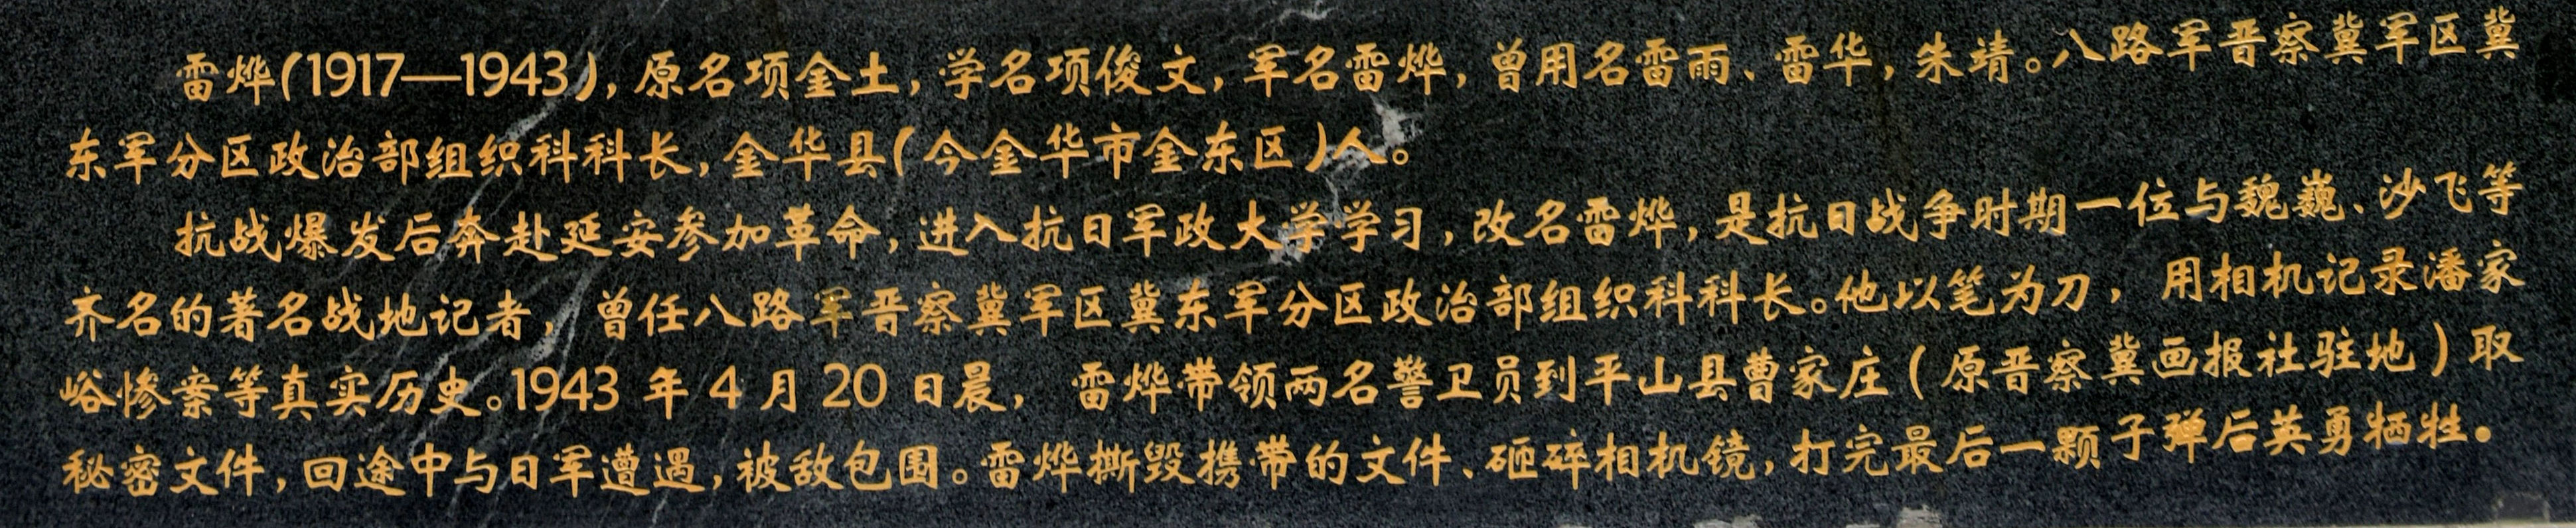 雷烨(1917—1943),原名项金土,学名项俊文,军名雷烨,曾用名雷雨、雷华,朱靖。八路军晋察冀军区冀
东军分区政治部组织科科长,金华县(今金华市金东区)人。
抗战爆发后奔赴延安参加革命,进入抗日军政大学学习,改名雷烨,是抗日战争时期一位与魏巍、沙飞等
齐名的著名战地记者,曾任八路军晋察冀军区冀东军分区政治部组织科科长。他以笔为刀,用相机记录潘家
峪惨案等真实历史。1943 年 4 月 20 日晨,雷烨带领两名警卫员到平山县曹家庄(原晋察冀画报社驻地)取
秘密文件,回途中与日军遭遇,被敌包围。雷烨撕毁携带的文件、砸碎相机镜,打完最后一颗子弹后英勇牺牲。